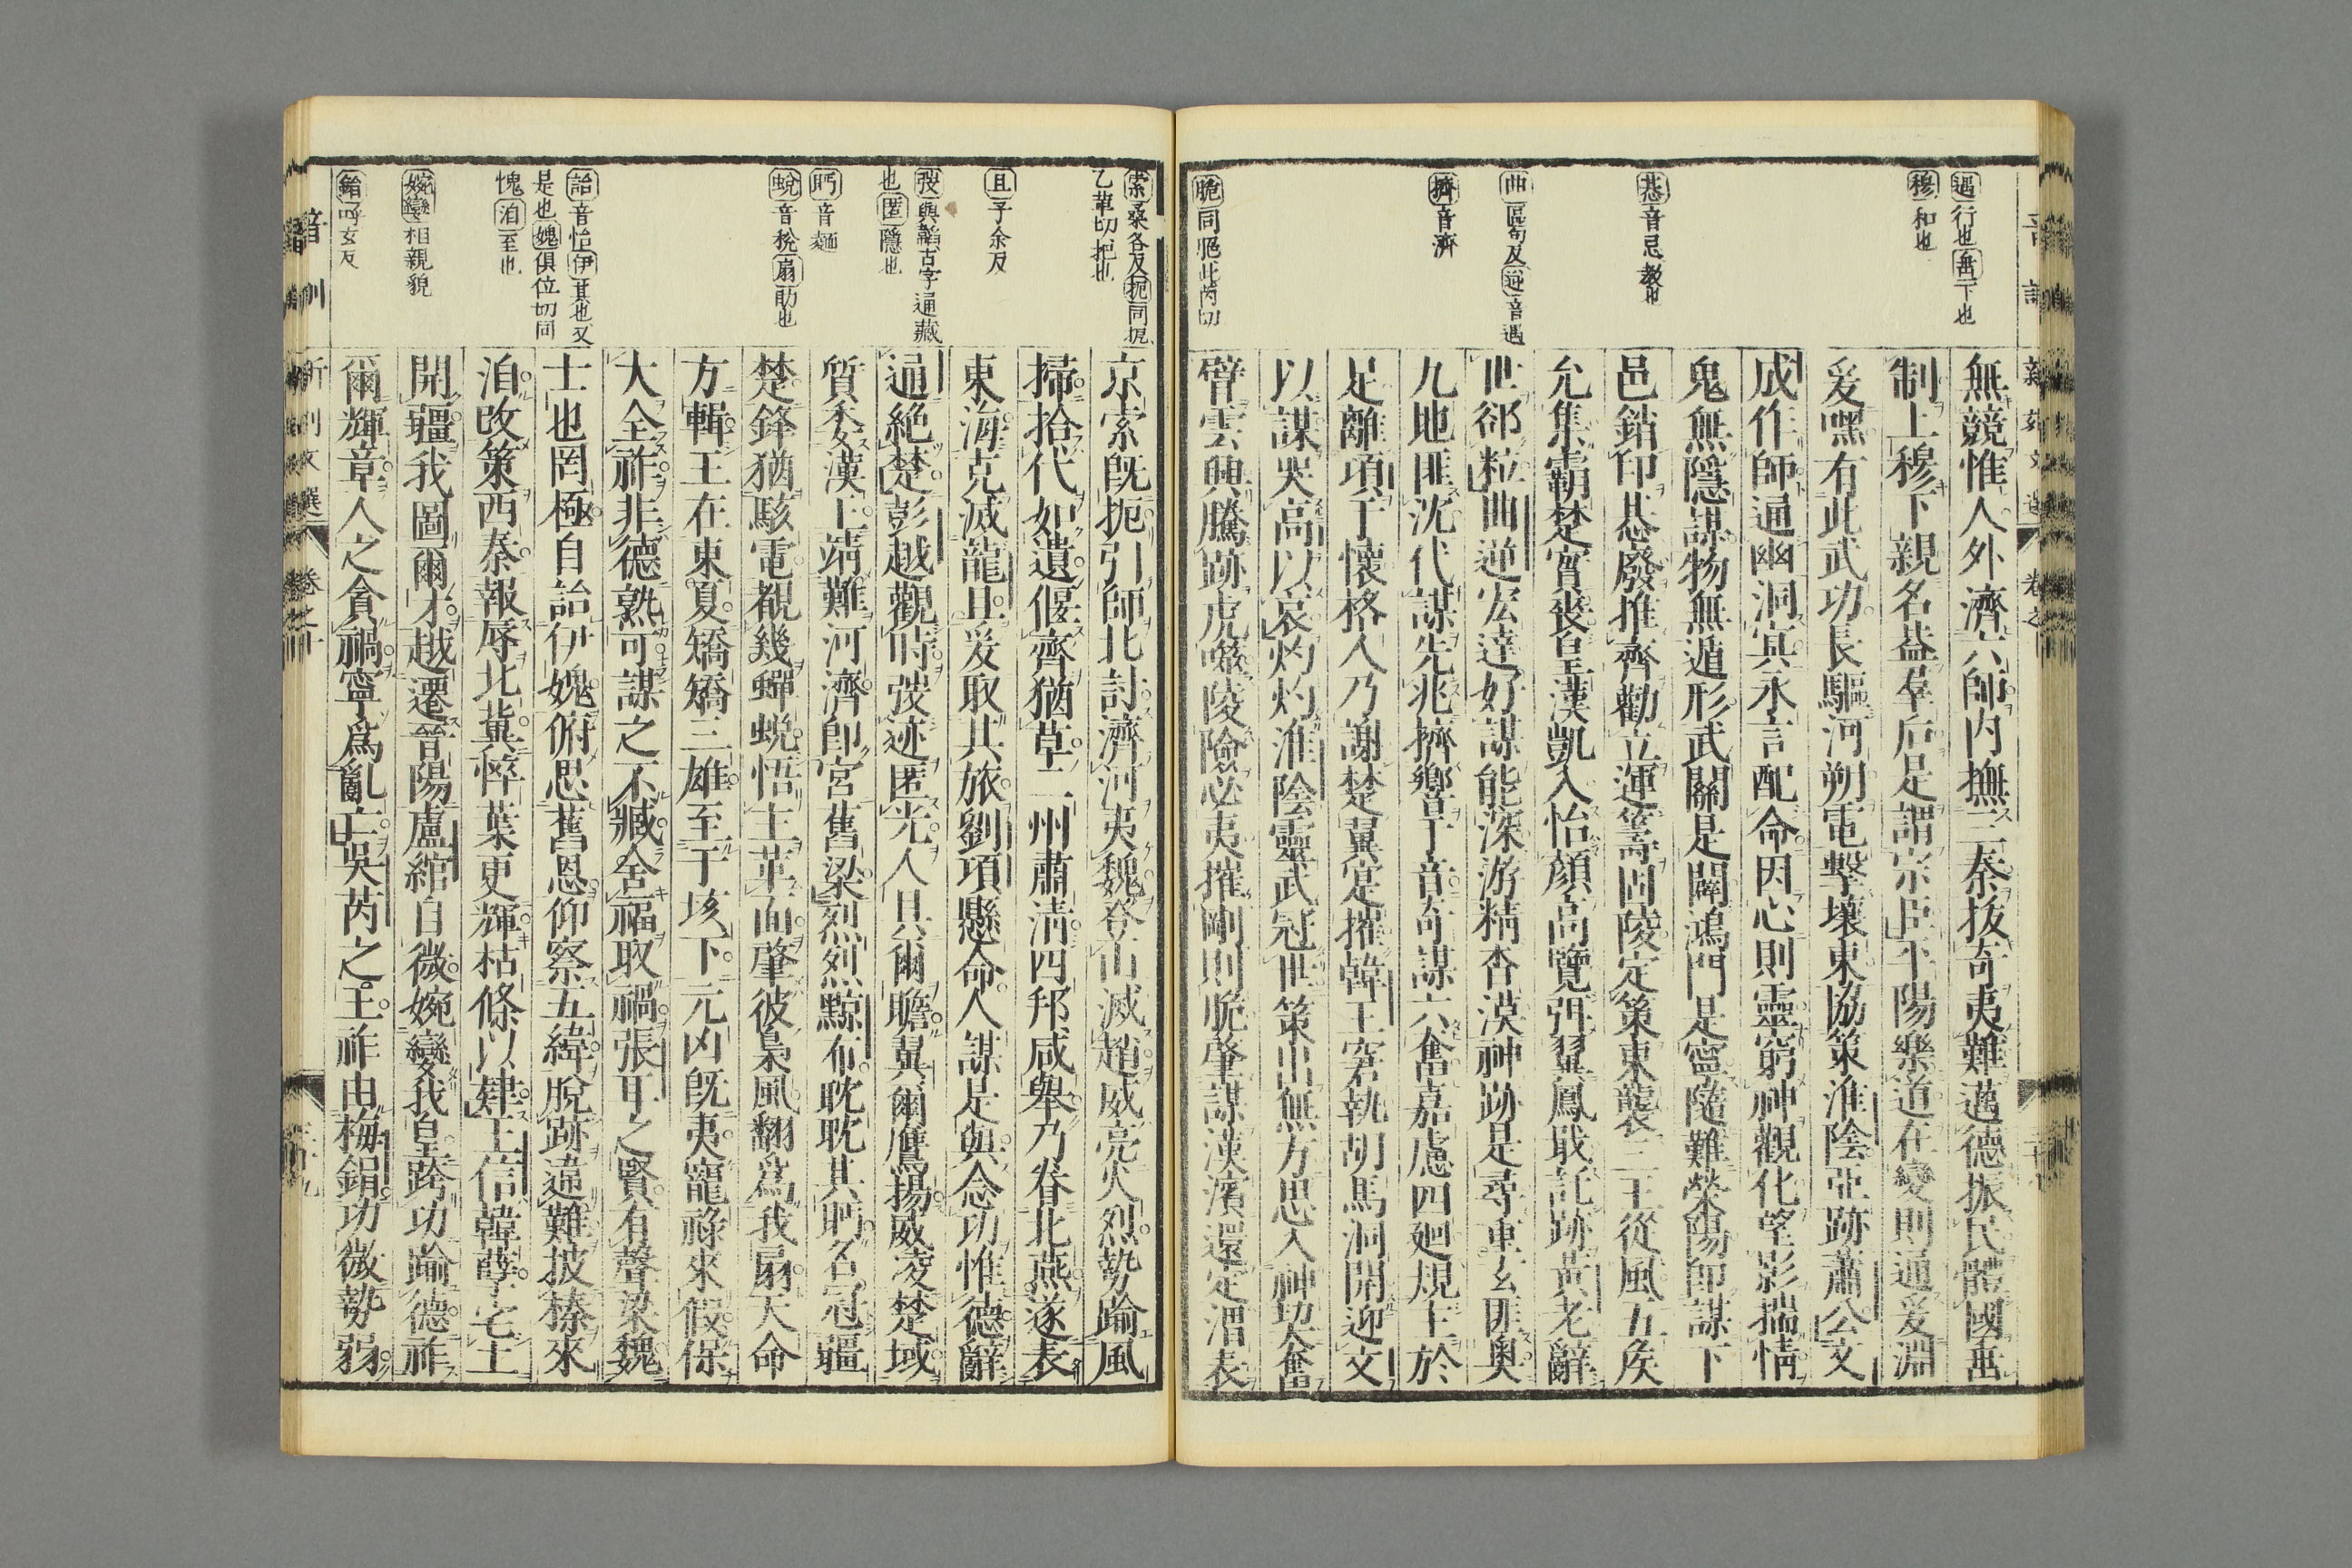 無競惟人外濟六師内撫三秦拔奇夷難邁德振民體國垂
制上穆下親名蓋羣后是謂宗臣平陽樂道在變則通爰淵
爰嘿有此武功長驅河朔電擊壤東協策淮陰亞跡蕭公文
成作師通幽洞冥永言配命因心則靈窮神觀化望影揣情
鬼無隱謀物無遁形武關是闢鴻門是寧隨難滎陽即謀下
邑銷印惎廢推齊勸立運籌固陵定策東襲三王從風五侯
允集霸楚寔喪皇漢凱入怡顏高覽弭翼鳳戢託跡黃老辭
世却粒曲逆宏達好謀能深游精杳漠神跡是尋重玄匪奧
九地匪沈伐謀先兆擠響于音奇謀六奮嘉慮四廻規主於
足離項于懷格人乃謝楚翼寔摧韓王窘執胡馬洞開迎文
以謀哭高以哀灼灼淮陰靈武冠世策出無方思入神契奮
臂雲興騰跡虎噬陵險必夷摧剛則脆肇謀漢濱還定渭表
京索既扼引師北討濟河夷魏登山滅趙威亮火烈勢踰風
掃拾代如遺偃齊猶草二州肅清四邦咸舉乃眷北燕遂表
東海克滅龍且爰取其旅劉項懸命人謀是與念功惟德辭
通絕楚彭越觀時弢迹匿光人具爾瞻翼爾鷹揚威凌楚域
質委漢王靖難河濟即宮舊梁烈烈黥布眈眈其眄名冠疆
楚鋒猶駭電覩幾蟬蛻悟主革面肇彼梟風翻爲我扇天命
方輯王在東夏矯矯三雄至于垓下元凶既夷寵祿來假保
大全祚非德孰可謀之不臧舍福取禍張耳之賢有聲梁魏
士也罔極自詒伊媿俯思舊恩仰察五緯脫跡違難披榛來
洎改策西秦報辱北冀悴葉更輝枯條以肄王信韓孽宅土
開疆我圖爾才越遷晉陽盧綰自微婉孌我皇跨功踰德祚
爾輝章人之貪禍寧爲亂亡吳芮之王祚由梅鋗功微勢弱
遏行也垂下也
穆和也
惎音忌教也
曲區句反逆音遇
擠音濟
脆同脃此芮切
索桑各反扼同搤
乙革切把也
且子余反
弢與韜古字通藏
也匿隱也
眄音麵
蛻音稅扇助也
詒音怡伊其也又
是也媿俱位切同
愧洎至也
婉孌相親貌
鋗呼玄反
音訓
新刊文選
卷之